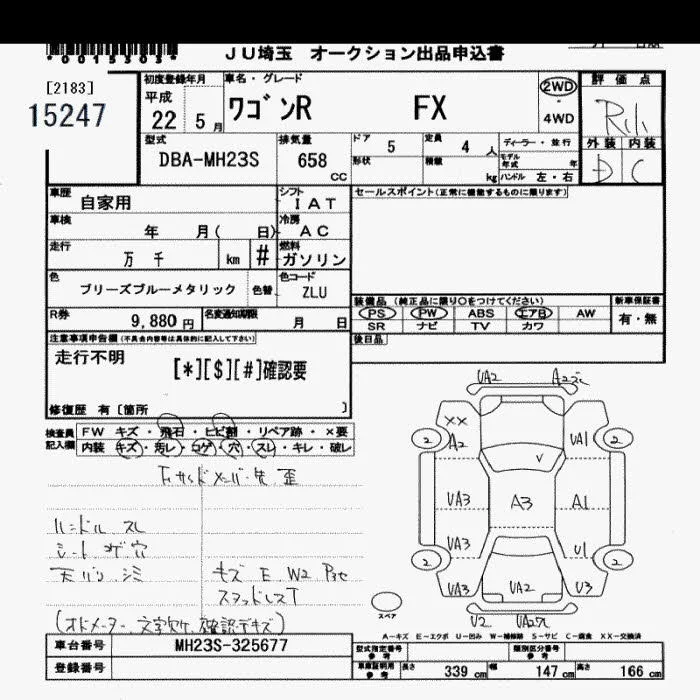 *0015303*
JU埼玉 オークション出品申込書
[2183]
15247
初度登録年月
平成
22 5月
車名・グレード
ワゴンR FX
2WD
・
4WD
評価点
外装 内装
D C
型式
DBA-MH23S
排気量
658 CC
ドア 5
定員 4 人
形状
積載 kg
ディーラー・並行
モデル年式 年
ハンドル 左・右
車歴 自家用
シフト IAT
車検 年 月( 日)
冷房 AC
走行 万 千 km #
燃料 ガソリン
色 ブリーズブルーメタリック 色替
色コード ZLU
R券 9,880円
名変通知期限 月 日
セールスポイント(正常に機能するものに限ります)
装備品 (純正品に限り○をつけてください)
PS PW ABS エアB AW
SR ナビ TV カワ
新車保証書
有・無
後日品
注意事項申告欄(不具合内容等は具体的に記入して下さい)
走行不明
[*][$][#]確認要
修復歴 有[箇所 ]
検査員記入欄
FW キズ・飛石・ヒビ割・リペア跡・×要
内装 キズ・汚レ・コゲ・穴・スレ・キレ・破レ
ハンドル スレ
シート コゲ穴
天バリ シミ
キズ E W2
スタッドレスT
(オドメーター文字欠け 確認デキズ)
UA2
XX
A2
2
UA1
2
V
UA3
A3
A1
UA3
U1
2
2
UA3
UA2
U3
U2
スペア
A-キズ E-エクボ U-凹み W-補修跡 S-サビ C-腐食 XX-交換済
車台番号 MH23S-325677
登録番号
型式指定番号
参考
類別区分番号
参考
車庫証明用
参考
長さ 339 cm
幅 147 cm
高さ 166 cm